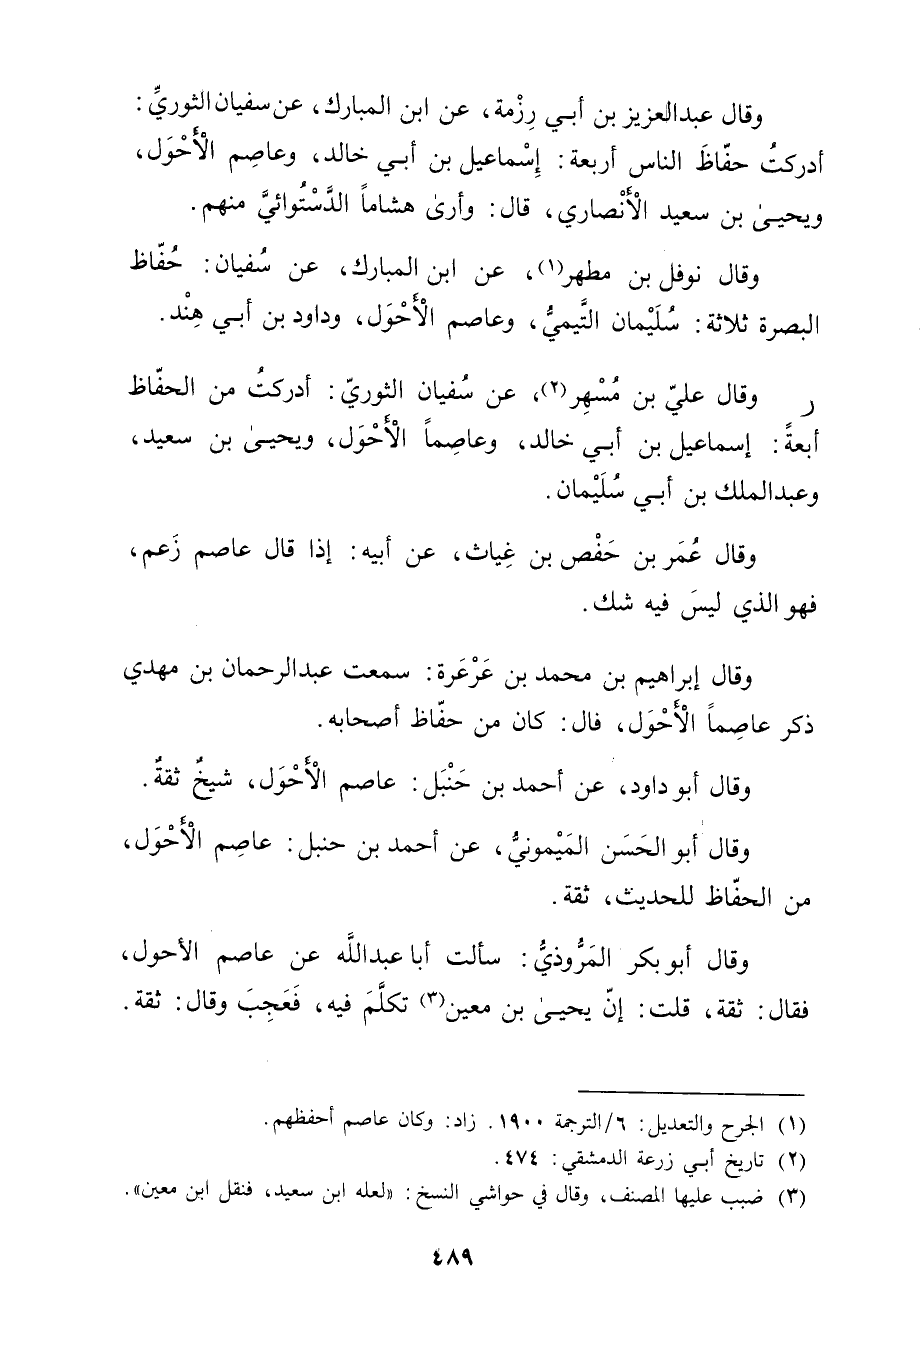 وقال عبدالعزيز بن أبي رِزْمة، عن ابن المبارك، عن سفيان الثوريِّ:
أدركتُ حفّاظَ الناس أربعة: إِسْماعيل بن أبي خالد، وعاصِم الْأَحْوَل،
ويحيىٰ بن سعيد الْأَنْصاري، قال: وأرىٰ هشاماً الدَّسْتُوائيَّ منهم.
وقال نوفل بن مطهر(١)، عن ابن المبارك، عن سُفيان: حُفّاظ
البصرة ثلاثة: سُلَيْمان التَّيميُّ، وعاصم الْأَحْوَل، وداود بن أبي هِنْد.
وقال عليّ بن مُسْهِر(٢)، عن سُفيان الثوريّ: أدركتُ من الحفّاظ
ر
أبعةً: إسماعيل بن أبي خالد، وعاصِماً الْأَحْوَل، ويحيىٰ بن سعيد،
وعبدالملك بن أبي سُلَيْمان.
وقال عُمَر بن حَفْص بن غِياث، عن أبيه: إذا قال عاصم زَعم،
فهو الذي ليسَ فيه شك.
وقال إبراهيم بن محمد بن عَرْعَرة: سمعت عبدالرحمان بن مهدي
ذكر عاصِماً الْأَحْوَل، فال: كان من حفّاظ أصحابه.
وقال أبو داود، عن أحمد بن حَنْبَل: عاصم الْأَحْوَل، شيخٌ ثقةٌ.
وقال أبو الحَسَن المَيْمونيُّ، عن أحمد بن حنبل: عاصِم الْأَحْوَل،
من الحفّاظ للحديث، ثقة.
وقال أبو بكر المَرُّوذيُّ: سألت أبا عبداللَّه عن عاصم الأحول،
فقال: ثقة، قلت: إنّ يحيىٰ بن معين(٣) تكلَّمَ فيه، فَعَجِبَ وقال: ثقة.
(١) الجرح والتعديل: ٦/الترجمة ١٩٠٠. زاد: وكان عاصم أحفظهم.
(٢) تاريخ أبي زرعة الدمشقي: ٤٧٤.
(٣) ضبب عليها المصنف، وقال في حواشي النسخ: «لعله ابن سعيد، فنقل ابن معين».
٤٨٩